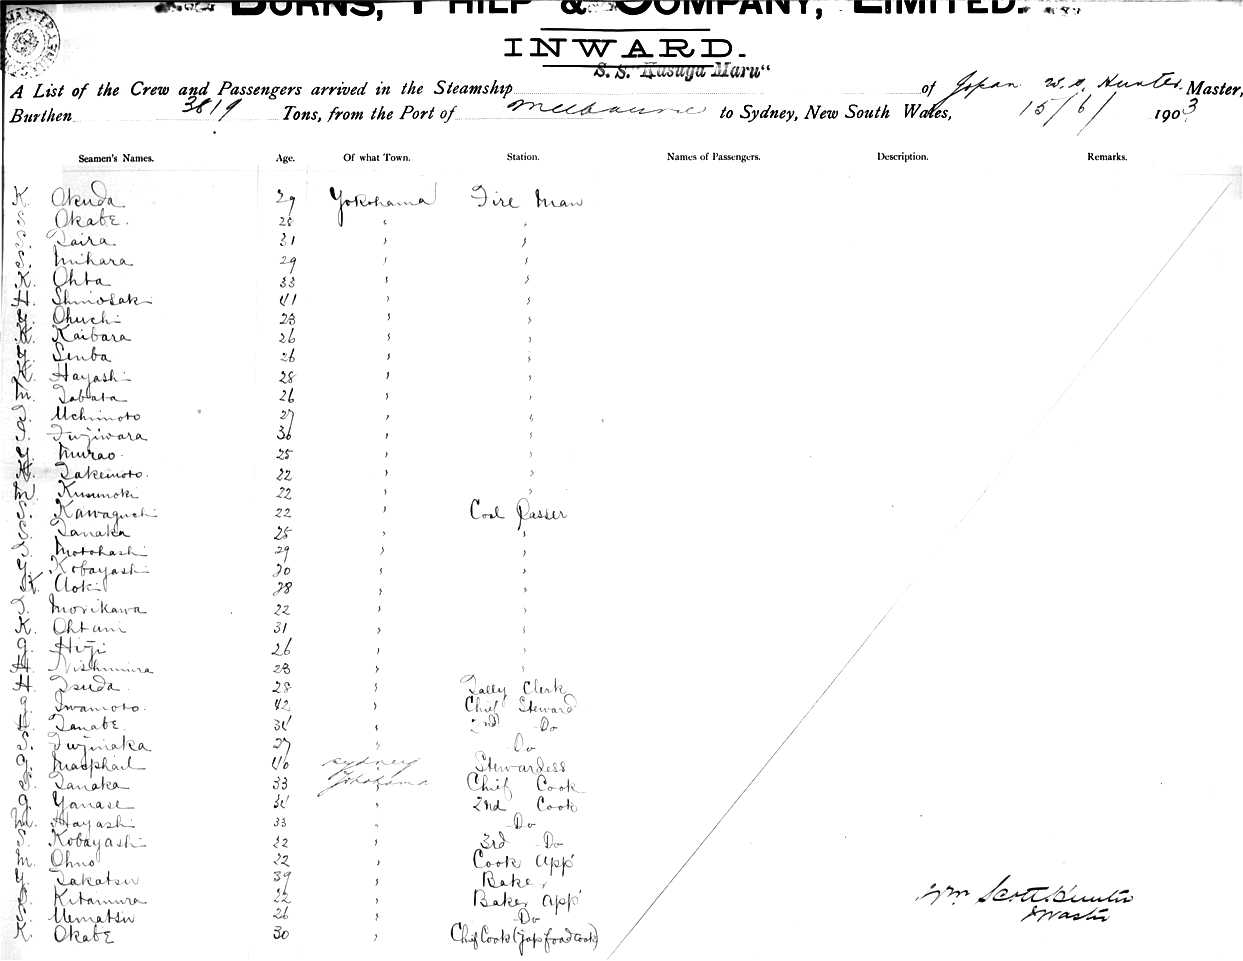 BURNS, PHILP & COMPANY, LIMITED.
INWARD.
S.S. "Kasuga Maru"
A List of the Crew and Passengers arrived in the Steamship of Japan W. S. Hunter Master,
Burthen 3819 Tons, from the Port of Melbourne to Sydney, New South Wales, 15/6/1903
Seamen's Names. Age. Of what Town. Station. Names of Passengers. Description. Remarks.
K. Okuda 29 Yokohama Fire Man
S. Okabe. 28 " "
S. Taira 31 " "
S. Mihara 29 " "
K. Ohta 33 " "
H. Shinosaki 41 " "
Ohuchi 28 " "
K. Kaibara 26 " "
Senba 26 " "
K. Hayashi 28 " "
M. Tabata 26 " "
Uchimoto 27 " "
Fujiwara 36 " "
Y. Murao 25 " "
Takemoto 22 " "
M. Kusunoki 22 " "
S. Kawaguchi 22 " Coal Passer
S. Tanaka 25 " "
Motohashi 29 " "
Y. Kobayashi 20 " "
K. Aoki 28 " "
Morikawa 22 " "
K. Ohtani 31 " "
Hiji 26 " "
H. Nishimura 28 " "
H. Tsuda 28 " Tally Clerk
Iwamoto 42 " Chief Steward
Tanabe 34 " 2nd Do
Fujinaka 27 " Do
Macphail 40 Sydney Stewardess
Tanaka 33 Yokohama Chief Cook
Yanase 34 " 2nd Cook
M. Hayashi 33 " Do
S. Kobayashi 22 " 3rd Do
M. Ohno 22 " Cook App
Y. Takatsu 39 " Baker
Kitamura 22 " Baker App
Uematsu 26 " Do
K. Okabe 30 " Chief Cook (Jap food cook)
Wm Scott Hunter
Master